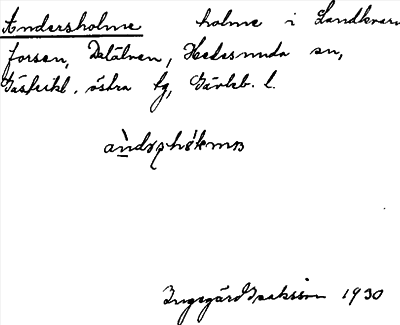 Andersholme holme i Landkvarn
forsen, Dalälven, Hedesunda sn,
Gästrikl. östra tg, Gävleb. l.
Ingegärd Isaksson 1930